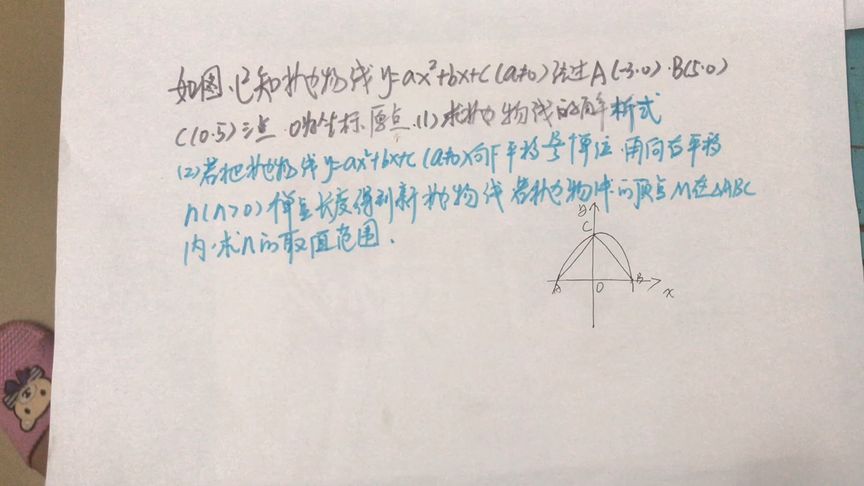 如图，已知抛物线y=ax²+bx+c(a≠0)经过A(-3·0)·B(5·0)
C(0·5)三点·O为坐标原点·(1)求抛物线的解析式
(2)若把抛物线y=ax²+bx+c(a≠0)向下平移 单位 再向右平移
n(n>0)单位长度得到新抛物线 若抛物线的顶点M在△ABC
内·求n的取值范围.
y
C
A
O
B
x